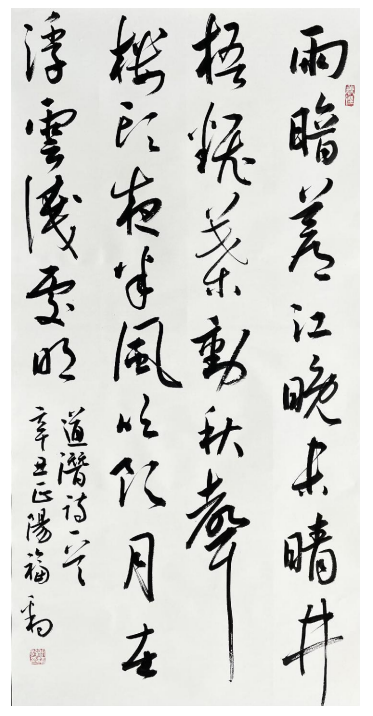 雨暗蒼江晚未晴井
梧翻葉動秋聲
樓頭夜半風吹斷月在
浮雲淺處明
道潛詩一首
辛丑正陽福